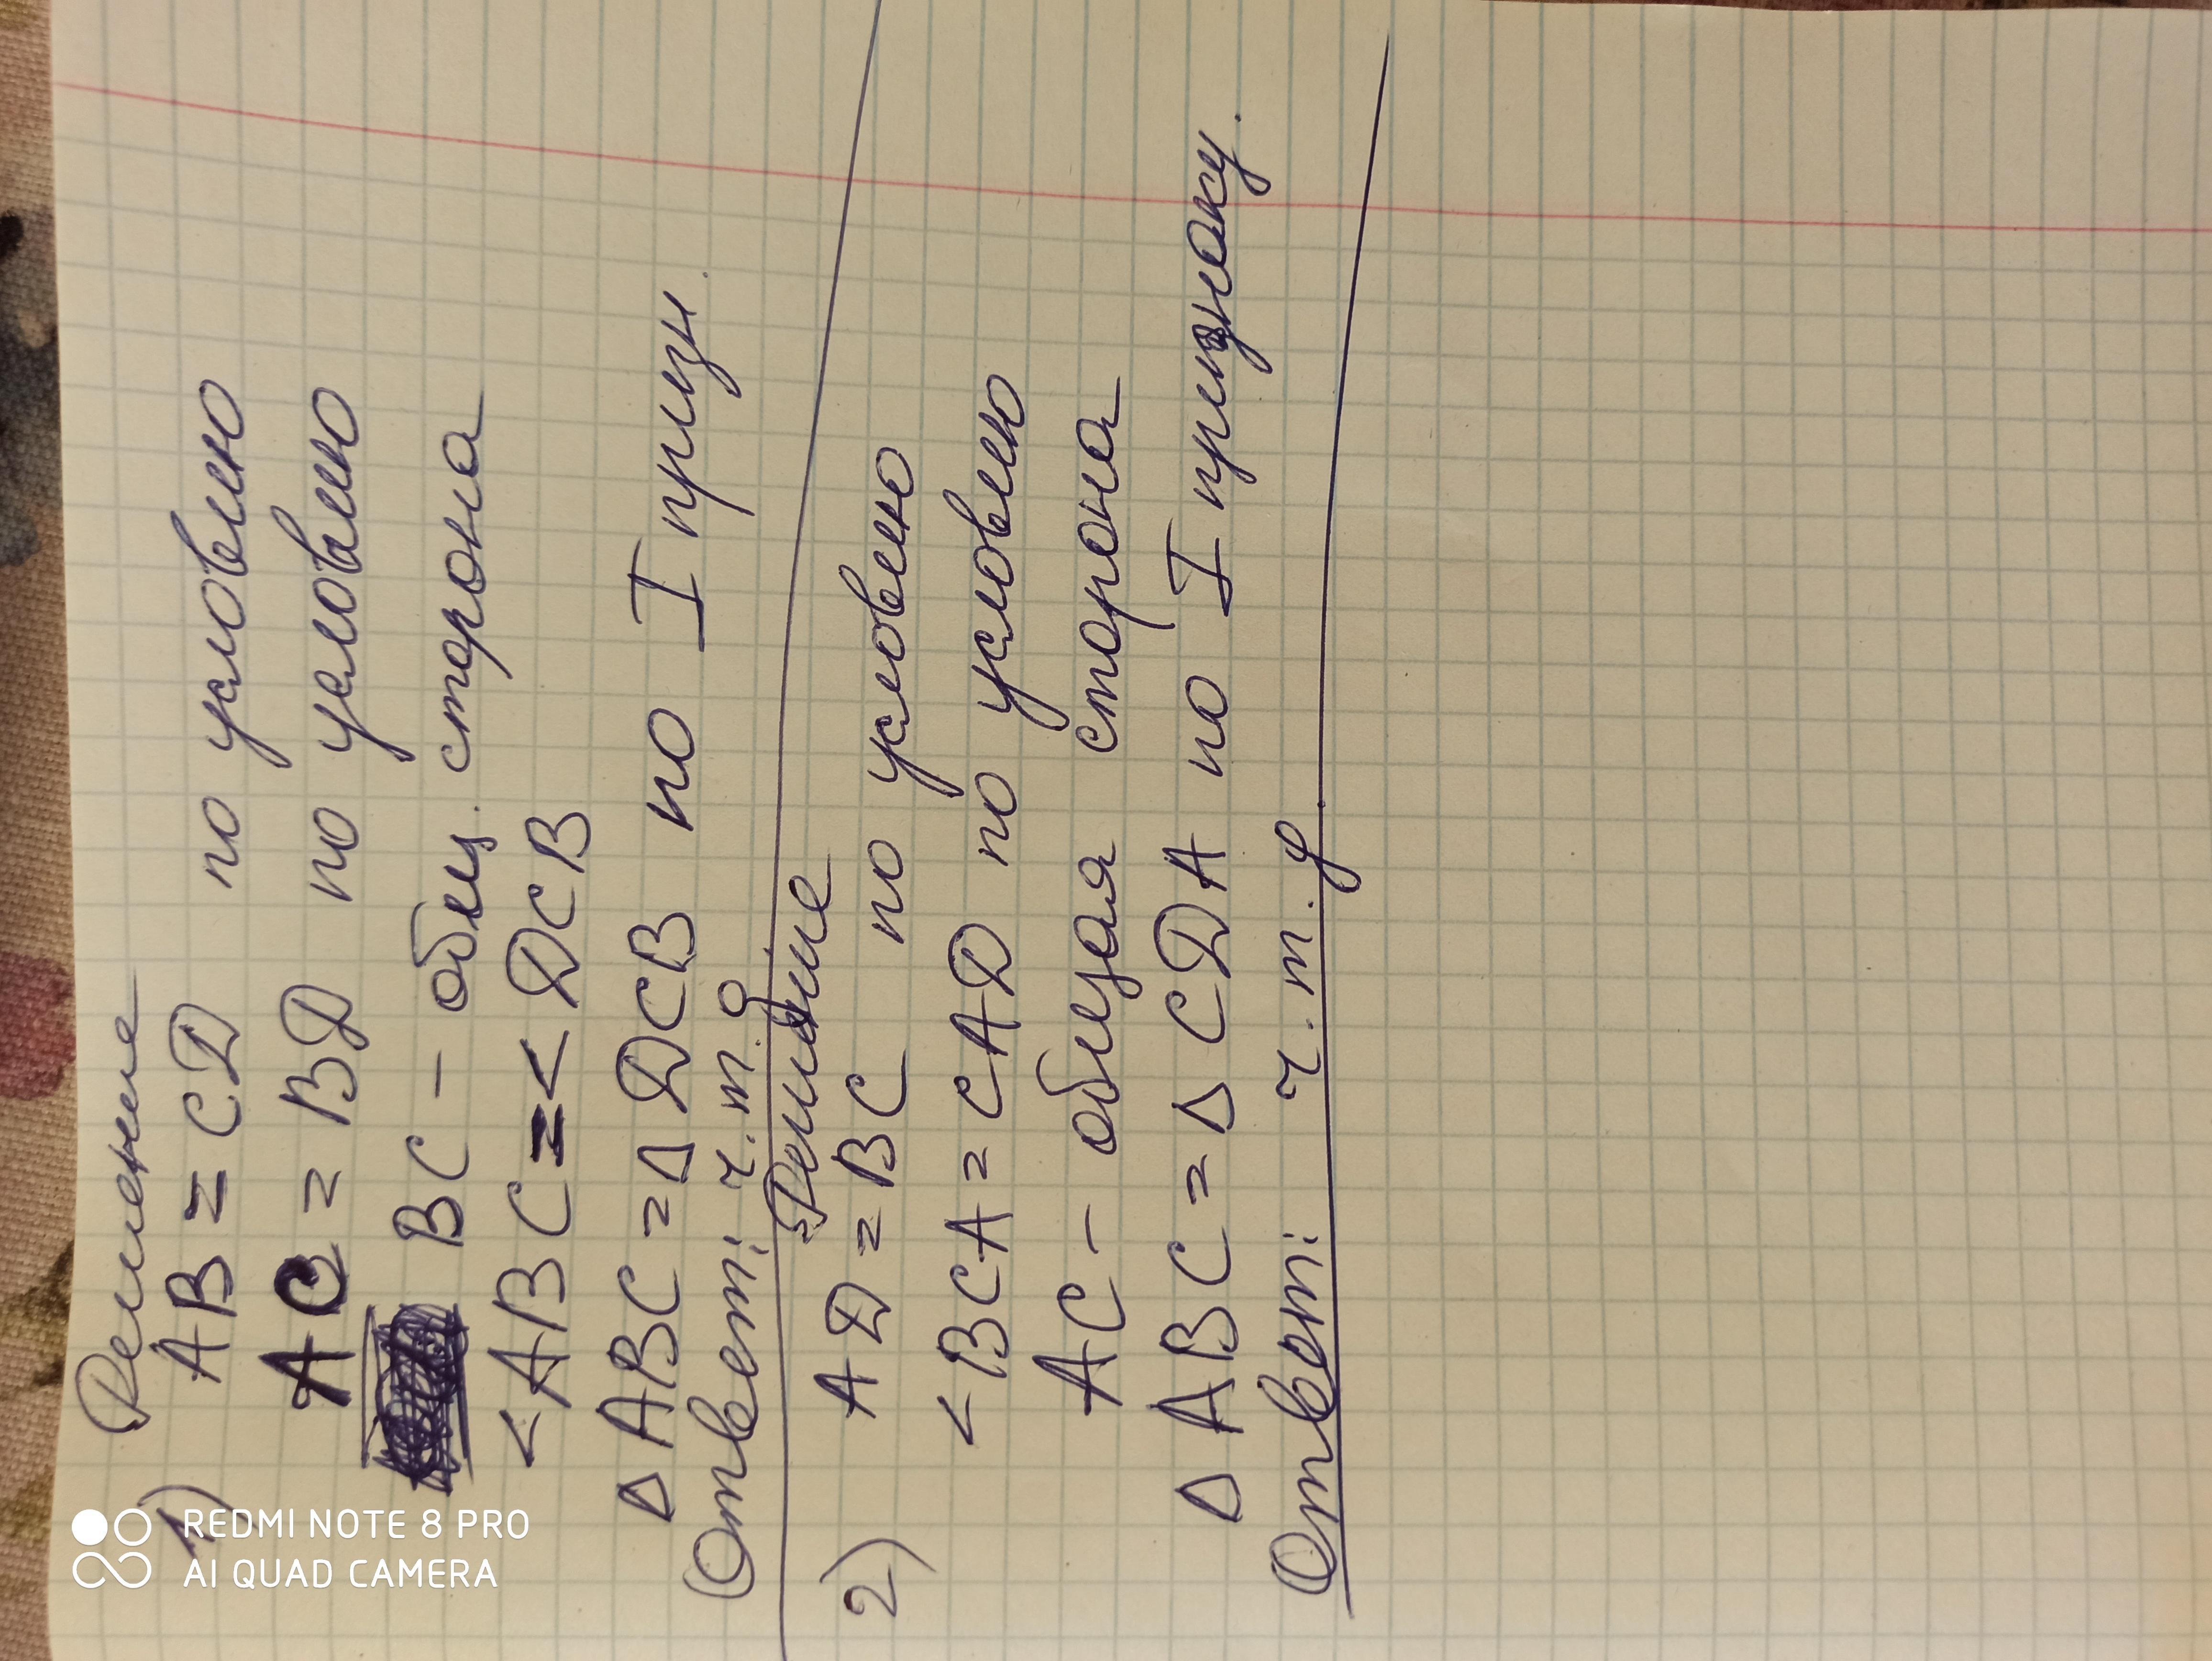 Решение
1) AB = CD по условию
AC = BD по условию
BC – общ. сторона
<ABC = <DCB
Δ ABC = Δ DCB по I призн.
Ответ: ч.т.д
Решение
2) AD = BC по условию
<BCA = CAD по условию
AC – общая сторона
Δ ABC = Δ CDA по I признаку.
Ответ: ч.т.д
REDMI NOTE 8 PRO
AI QUAD CAMERA